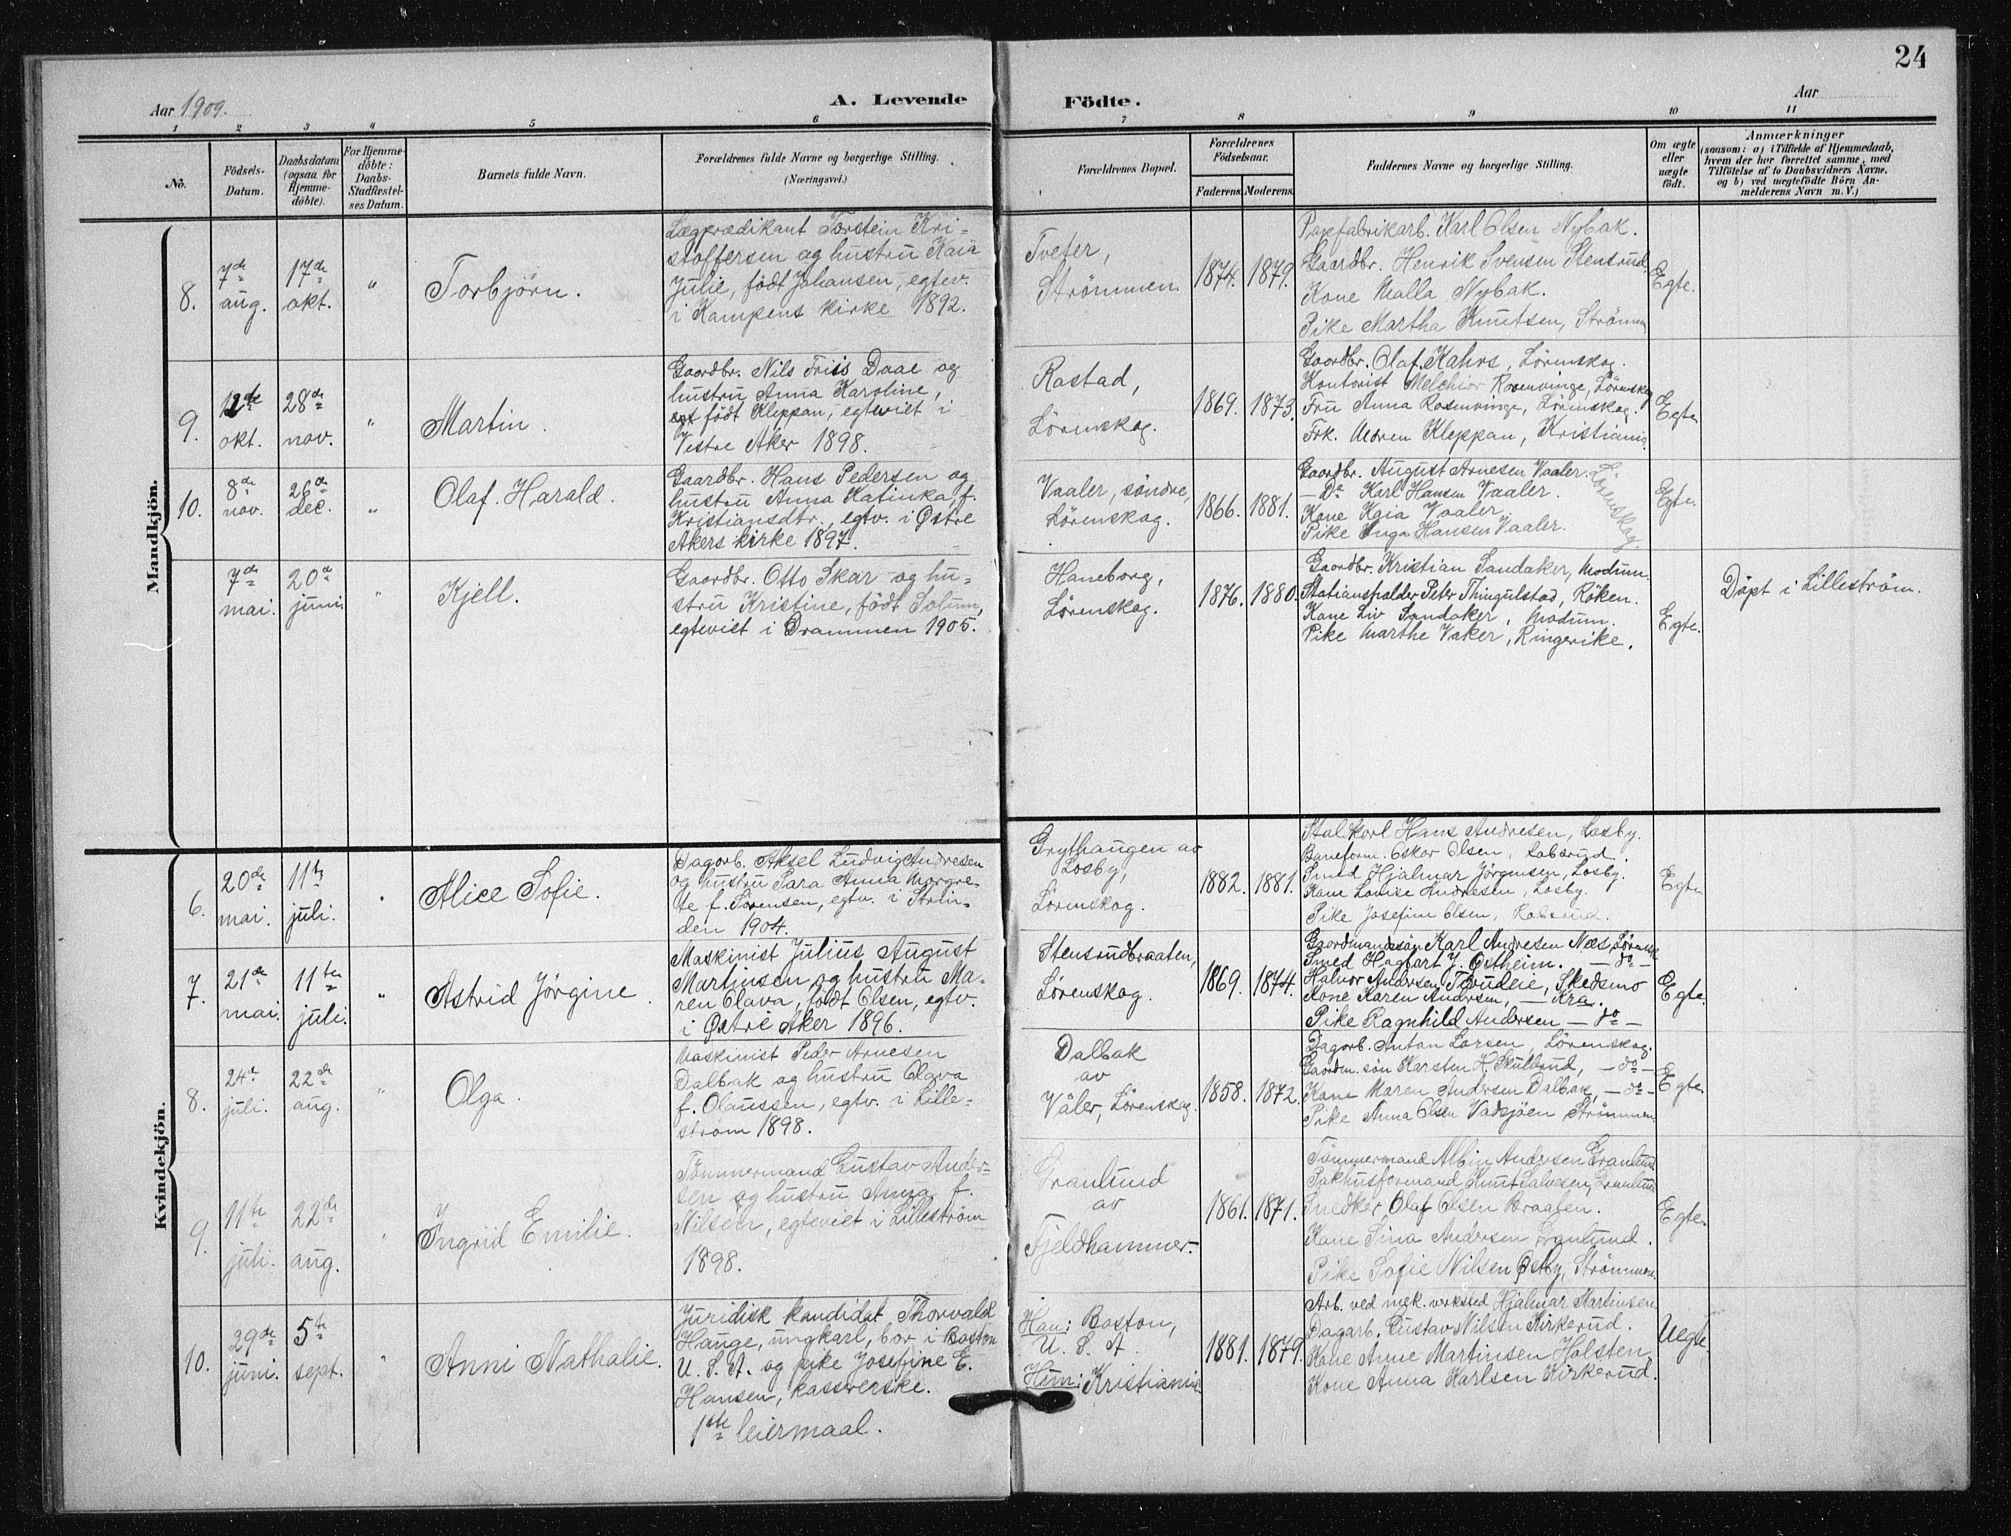 24
Aar 1909.
A. Levende Födte.
Aar
1 2 3 4 5 6 7 8 9 10 11
No.
Födsels-
Datum.
Daabsdatum
(ogsaa for
Hjemme-
döbte).
For Hjemme-
döbte:
Daabs-
Stadfæstel-
ses Datum.
Barnets fulde Navn.
Forældrenes fulde Navne og borgerlige Stilling.
(Næringsvei.)
Forældrenes Bopæl.
Forældrenes
Födselsaar.
Faderens. Moderens.
Faddernes Navne og borgerlige Stilling.
Om ægte
eller
uægte
födt.
Anmærkninger
(saasom: a) i Tilfælde af Hjemmedaab,
hvem der har forrettet samme, med
Tilföielse af to Daabsvidners Navne.
og b) ved uægtefödte Börn An-
melderens Navn m. V.)
Mandkjön.
8.
7de
aug.
17de
okt.
"
Torbjörn.
Lægprædikant Torstein Kri-
stoffersen og hustru Kaia
Julie, født Johansen, egtev.
i Kampens kirke 1892.
Tveter,
Strömmen
1874. 1879.
Papfabrikarb. Karl Olsen Nybak.
Gaardbr. Henrik Svensen Stensrud
Kone Malla Nybak.
Pike Martha Knutsen, Strömm
Egte.
9.
12te
okt.
28de
nov.
"
Martin.
Gaardbr. Nils Friis Daae og
hustru Anna Karoline,
født Kleppan, egteviet i
Vestre Aker 1898.
Rastad,
Lörenskog.
1869. 1873.
Gaardbr. Olaf Kahrs, Lörenskog.
Kontorist Melchior Rosenvinge, Lörenskog
Fru Anna Rosenvinge, Lörenskog.
Frk. Maren Kleppan, Kristiania
Egte.
10.
8de
nov.
26de
dec.
"
Olaf Harald.
Gaardbr. Hans Pedersen og
hustru Anna Katinka, f.
Kristiansdtr., egtv. i Østre
Akers kirke 1897.
Vaaler, söndre,
Lörenskog.
1866. 1881.
Gaardbr. August Arnesen Vaaler.
— Do Karl Hansen Vaaler.
Kone Kaia Vaaler,
Pike Inga Hansen Vaaler.
Lörenskog
Egte.
7de
mai.
20de
juni.
"
Kjell.
Gaardbr. Otto Skar og hu-
stru Kristine, født Solum,
egteviet i Drammen 1905.
Haneborg,
Lörenskog.
1876. 1880.
Gaardbr. Kristian Sandaker, Modum.
Stationsholder Peter Thingulstad, Röken.
Kone Liv Sandaker, Modum.
Pike Marthe Vaker, Ringerike.
Egte.
Döpt i Lilleström.
Kvindekjön.
6.
20de
mai.
11te
juli.
"
Alice Sofie.
Dagarb. Aksel Ludvig Andresen
og hustru Sara Anna Margre-
te f. Sørensen, egtv. i Strin-
den 1904.
Grythaugen av
Losby,
Lörenskog.
1882. 1881.
Stalkarl Hans Andresen, Losby.
Baneform. Oskar Olsen, Robsrud.
Smed Hjalmar Jörgensen, Losby.
Kone Louise Andresen, Losby.
Pike Josefine Olsen, Robsrud.
Egte.
7.
21de
mai.
11te
juli.
"
Astrid Jörgine.
Maskinist Julius August
Martinsen og hustru Ma-
ren Olava, født Olsen, egtv.
i Østre Aker 1896.
Stensrudbraaten,
Lörenskog.
1869. 1874.
Gaardmandssön Karl Andresen Næs, Lörensk
Smed Hagbart J. Østheim. — do —
Halvor Andersen Skedsmo
Kone Karen Andersen, — Kra.
Pike Ragnhild Andersen — do —
Egte.
8.
24de
juli.
22de
aug.
"
Olga.
Maskinist Peder Arnesen
Dalbak og hustru Olava
f. Olaussen, egtv. i Lille-
ström 1898.
Dalbak
av
Våler, Lörenskog.
1858. 1872.
Dagarb. Anton Larsen, Lörenskog.
Gaardm. sön Karsten H. Skullerud, — do —
Kone Maren Andersen Dalbak, — do —
Pike Anna Olsen Vadsjöen Strömmen
Egte.
9.
11te
juli.
22de
aug.
"
Ingrid Emilie.
Tömmermand Gustav Ander-
sen og hustru Anna f.
Nilsen, egteviet i Lilleström
1898.
Granlund
av
Fjeldhammer.
1861. 1871.
Tömmermand Albin Andersen Granlund
Pakhusformand Knut Salvesen, Granlund
Snedker Olaf Olsen Braaten.
Kone Lina Andersen Granlund.
Pike Sofie Nilsen Østby, Strömmen.
Egte.
10.
29de
juni.
5te
sept.
"
Anni Nathalie.
Juridisk kandidat Thorvald
Hauge, ungkarl, bor i Boston
U. S. A. og pike Josefine E.
Hansen, kasserske.
1ste leiermaal.
Han: Boston,
U. S. A.
Hun: Kristiania
1881. 1879.
Arb. ved mek. verksted Hjalmar Martinsen
Dagarb. Gustav Nilsen Kirkerud.
Kone Anne Martinsen Holsten,
Kone Anna Karlsen Kirkerud.
Uegte.